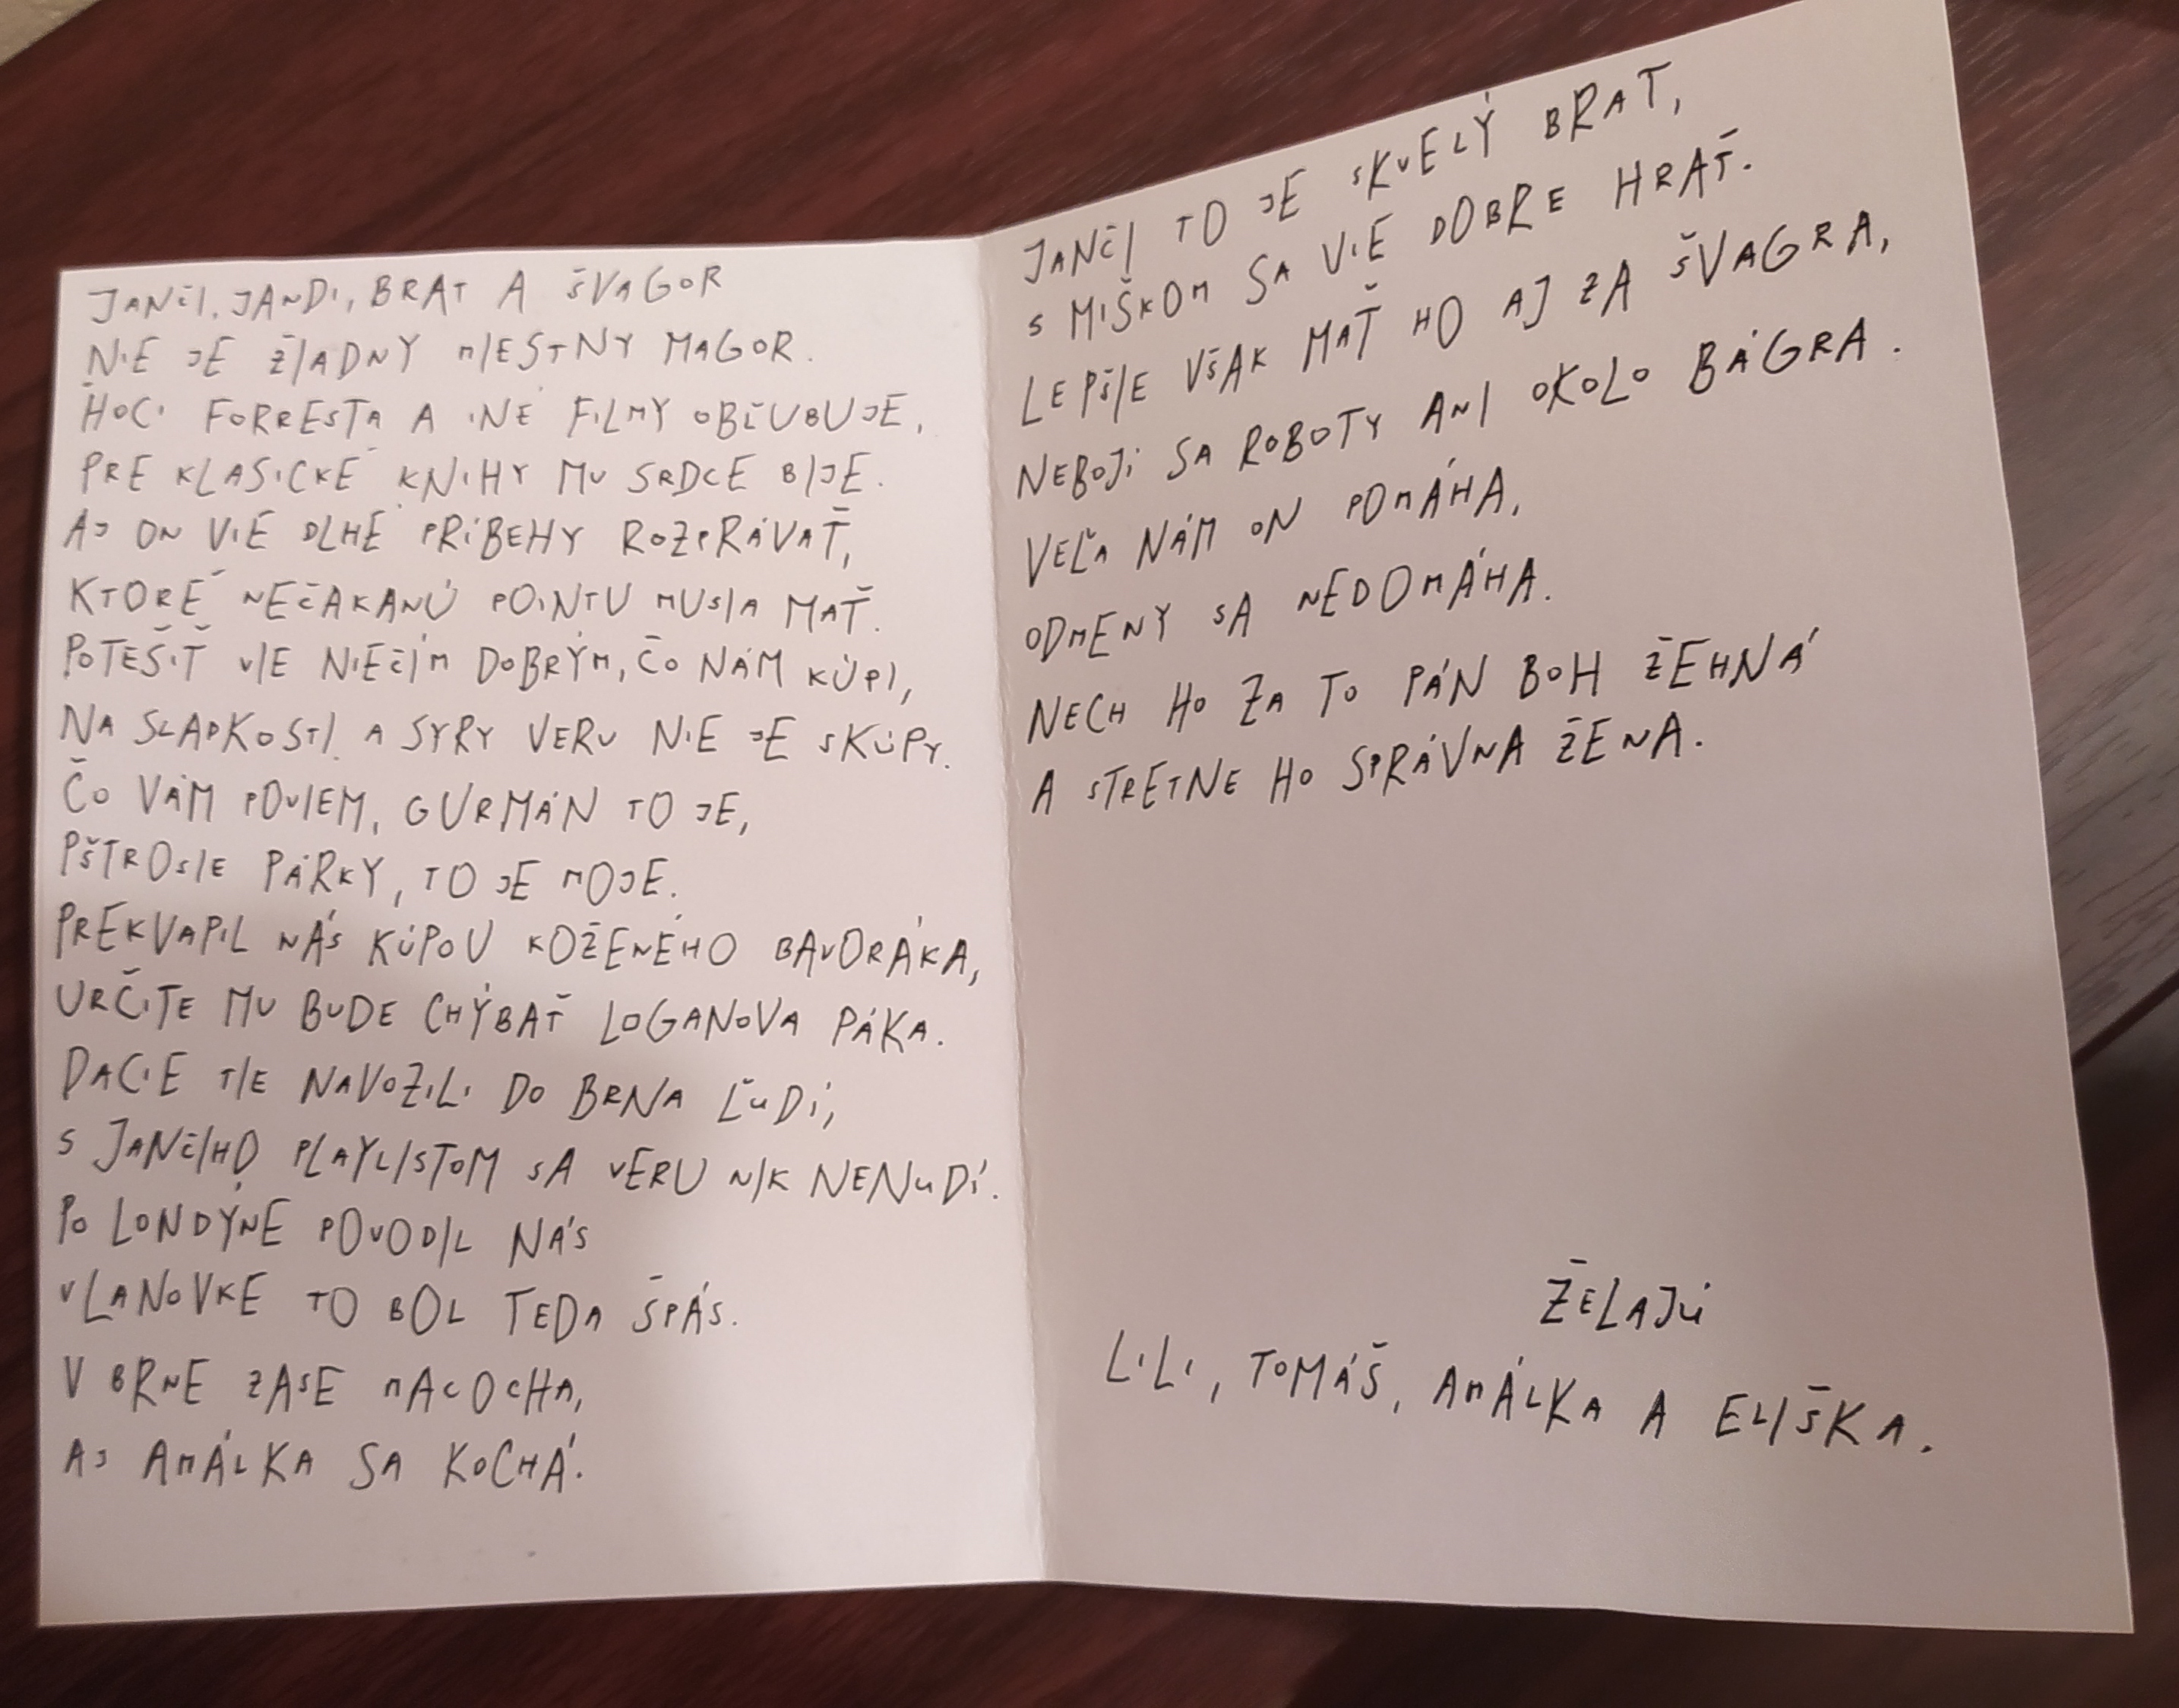 JANČI, JANDI, BRAT A ŠVAGOR
NIE JE ŽIADNY MIESTNY MAGOR.
HOCI FORRESTA A INÉ FILMY OBĽUBUJE,
PRE KLASICKÉ KNIHY MU SRDCE BIJE.
AJ ON VIE DLHÉ PRÍBEHY ROZPRÁVAŤ,
KTORÉ NEČAKANÚ POINTU MUSIA MAŤ.
POTEŠIŤ VIE NIEČÍM DOBRÝM, ČO NÁM KÚPI,
NA SLADKOSTI A SYRY VERU NIE JE SKÚPY.
ČO VÁM POVIEM, GURMÁN TO JE,
PŠTROSIE PÁRKY, TO JE MOJE.
PREKVAPIL NÁS KÚPOU KOŽENÉHO BAVORÁKA,
URČITE MU BUDE CHÝBAŤ LOGANOVA PÁKA.
DACIE TIE NAVOZILI DO BRNA ĽUDÍ,
S JANČIHO PLAYLISTOM SA VERU NIK NENUDÍ.
PO LONDÝNE POVODIL NÁS
VLANOVKE TO BOL TEDA ŠPÁS.
V BRNE ZASE MACOCHA,
AJ AMÁLKA SA KOCHÁ.
JANČI TO JE SKVELÝ BRAT,
S MIŠKOM SA VIE DOBRE HRAŤ.
LEPŠIE VŠAK MAŤ HO AJ ZA ŠVAGRA,
NEBOJÍ SA ROBOTY ANI OKOLO BÁGRA.
VEĽA NÁM ON POMÁHA,
ODMENY SA NEDOMÁHA.
NECH HO ZA TO PÁN BOH ŽEHNÁ
A STRETNE HO SPRÁVNA ŽENA.
ŽELAJÚ
LILI, TOMÁŠ, AMÁLKA A ELIŠKA.